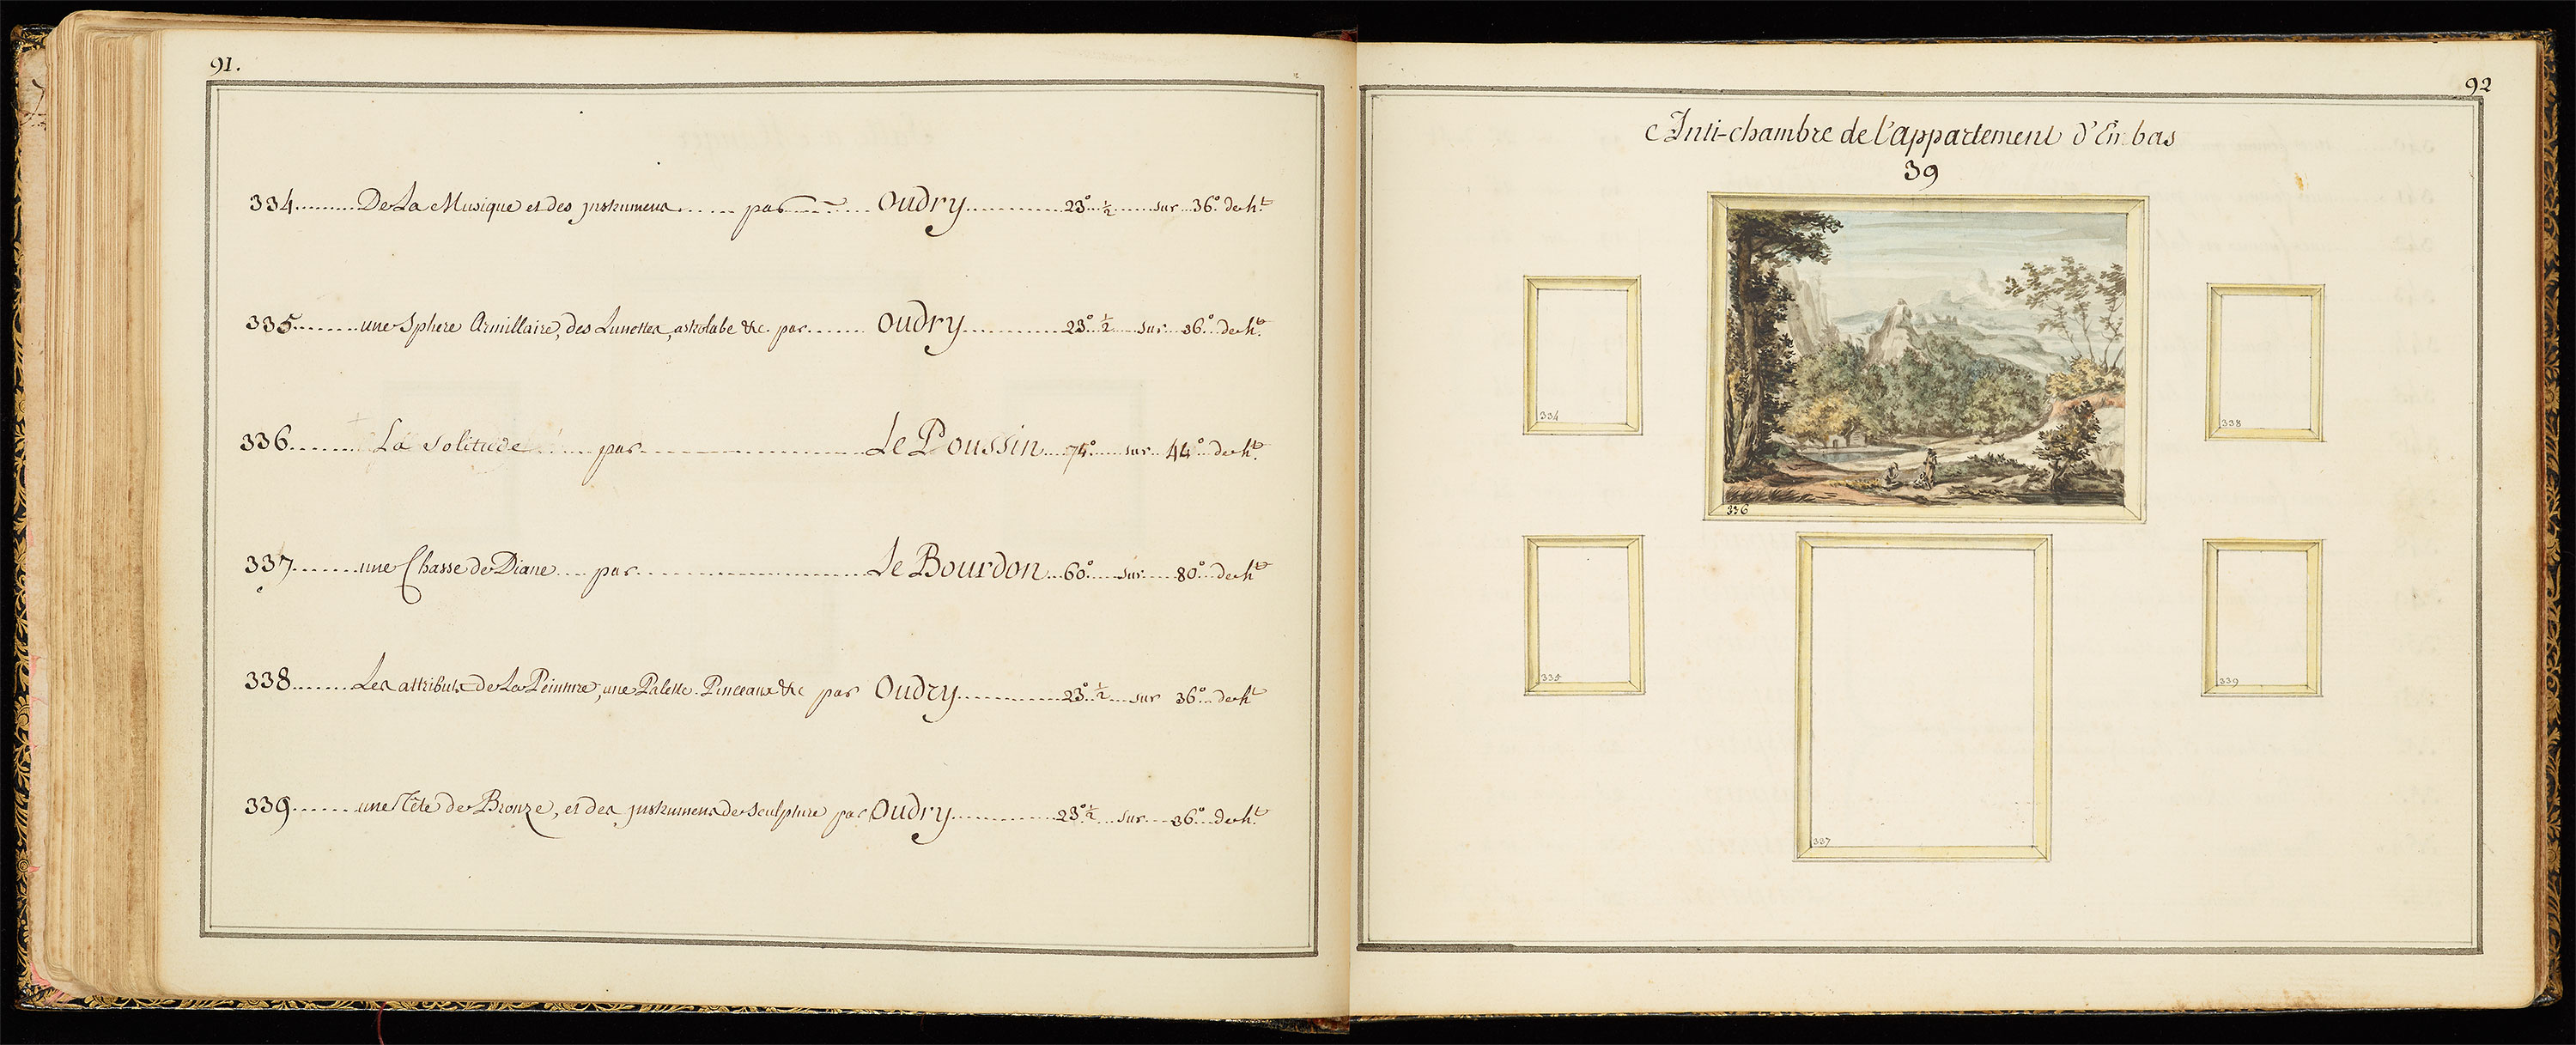 91.
334......... De La Musique et des jnstrumens ...... par ......... Oudry ............ 23° ½ ...... sur ... 36° de ht
335......... une Sphere Armillaire, des Lunettes, astrolabe &c. par ....... Oudry ............ 23° ½ ..... sur ... 36° de ht
336....... La Solitude ..... par ..................... Le Poussin .... 74° ..... sur ... 44° de ht
337....... une Chasse de Diane .... par ..................... Le Bourdon ... 60° ..... sur ..... 80° ... de ht
338....... Les attributs de La Peinture, une Palette Pinceaux &c par Oudry ............ 23° ½ .... sur 36° .. de ht
339....... une Tête de Bronze, et des jnstrumens de Sculpture par Oudry ............ 23° ½ ... sur ... 36° ... de ht
92
Anti-chambre de l'appartement d'En bas
39
334
338
336
335
339
337